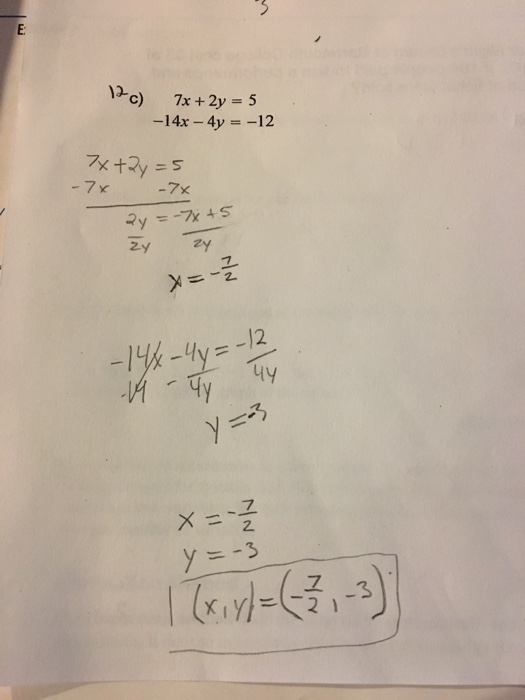 E:
12 c) 7x + 2y = 5
−14x − 4y = −12
7x+2y = 5
-7x -7x
2y = -7x +5
2y 2y
x = -7/2
-14x -4y = -12
-14 - 4y 4y
y = -3
x = -7/2
y = -3
(x,y)=(-7/2, -3)